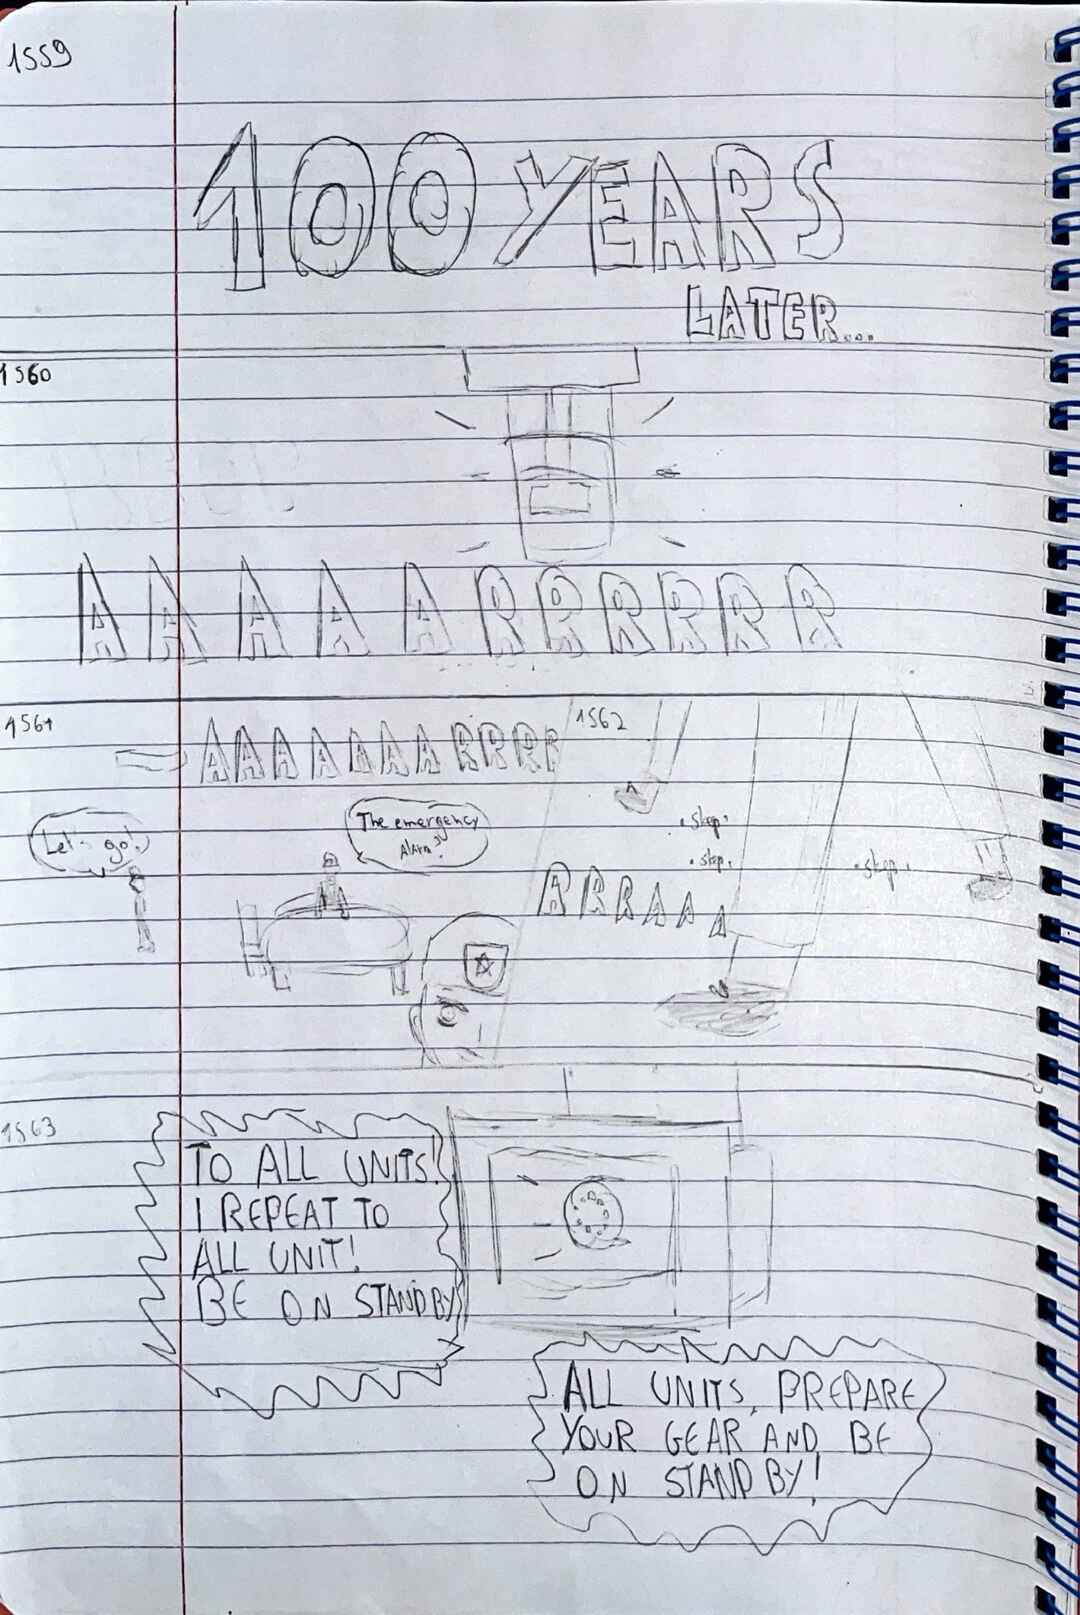 1559
100 YEARS
LATER...
1560
A A A A A R R R R R R
1561
AAAAAAARRRR
1562
Let's go!
The emergency
Alarm?
.step.
.step.
.step.
RRRAAA
1563
TO ALL UNITS!
I REPEAT TO
ALL UNIT!
BE ON STANDBY
ALL UNITS, PREPARE
YOUR GEAR AND BE
ON STAND BY!